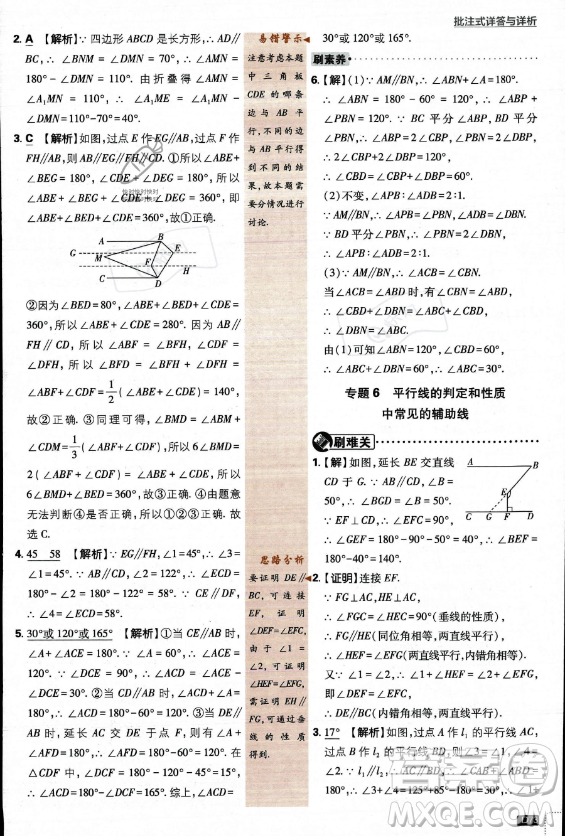 批注式详答与详析
2. A 【解析】∵ 四边形 ABCD 是长方形,∴ AD//
BC,∴ ∠BNM = ∠DMN = 70°,∴ ∠AMN =
180° - ∠DMN = 110°. 由折叠得 ∠AMN =
∠A₁MN = 110°, ∴ ∠A₁ME = ∠A₁MN -
∠DMN=110°-70°=40°.
3. C 【解析】如图,过点 E 作 EG//AB,过点 F 作
FH//AB,则 AB//EG//FH//CD.①所以∠ABE+
∠BEG = 180°,∠CDE + ∠DEG = 180°,所以
∠ABE+∠BEG+∠CDE+∠DEG=360°,即
∠ABE+∠BED+∠CDE=360°,故①正确.
A B
G E
M F H
C D
②因为∠BED=80°,∠ABE+∠BED+∠CDE=
360°,所以∠ABE+∠CDE=280°. 因为 AB//
FH//CD,所以 ∠ABF = ∠BFH, ∠CDF =
∠DFH,所以∠BFD = ∠BFH + ∠DFH =
∠ABF+∠CDF=1/2(∠ABE+∠CDE)=140°,
故②正确. ③同理可得,∠BMD = ∠ABM +
∠CDM=1/3(∠ABF + ∠CDF + ∠ABF + ∠CDF)=
2(∠ABF+∠CDF),故③正确. ④由题意
无法判断④是否正确. 所以①②③正确. 故
选 C.
4. 45 58 【解析】∵EG//FH,∠1=45°,∴∠3=
∠1=45°. ∵ AB//CD, ∠2=122°, ∴ ∠ECD=
180°-∠2=180°-122°=58°. ∵ CE//DF,
∴ ∠4=∠ECD=58°.
5. 30°或120°或165° 【解析】①当 CE//AB 时,
∠A+∠ACE=180°. ∵ ∠A=60°,∴∠ACE=
120°. ∵ ∠DCE = 90°, ∴ ∠ACD = ∠ACE -
∠DCE=30°. ②当 CD//AB 时,∠ACD+∠A=
180°,∴ ∠ACD = 180° - 60° = 120°. ③当
DE//AB 时,延长 AC 交 DE 于点 F,则有∠A+
∠AFD=180°,∴∠AFD=180°-60°=120°.在
△CDF 中,∠DCF=180°-120°-45°=15°,
∴ ∠ACD=180°-15°=165°. 综上,∠ACD=
易错警示
注意考虑本题
中三角板
CDE 的哪条
边与 AB 平
行,不同的边
与 AB 平行得
到不同的结
果,故本题需
要分情况进行
讨论.
思路分析
要证明 DE//
BC,可连接
EF, 证明
∠1+∠HEF=
∠2+∠GFE,
由于∠1=
∠2,只需证明
∠HEF=∠GFE,
可由 EH//
FG 得到,而
EH//FG 可通
过垂线的性质
得到.
30°或120°或165°.
刷素养
6.【解】(1)∵ AM//BN,∴∠ABN+∠A=180°.
∴ ∠ABN = 180° - 60° = 120°, ∴ ∠ABP +
∠PBN = 120°. ∵ BC 平分∠ABP,BD 平分
∠PBN,∴∠ABP=2∠CBP,∠PBN=2∠DBP,
∴ 2∠CBP+2∠DBP=120°,
∴ ∠CBD=∠CBP+∠DBP=60°.
(2)不变,∠APB:∠ADB=2:1.
∵AM//BN,∴∠APB=∠PBN,∠ADB=∠DBN.
∵ BD 平分∠PBN,∴∠PBN=2∠DBN,
∴ ∠APB:∠ADB=2:1.
(3)∵ AM//BN,∴∠ACB=∠CBN.
当∠ACB=∠ABD 时,则有∠CBN=∠ABD,
∴ ∠ABC+∠CBD=∠CBD+∠DBN,
∴ ∠DBN=∠ABC.
由(1)可知∠ABN=120°,∠CBD=60°,
∴ ∠ABC+∠DBN=60°,∴∠ABC=30°.
专题6 平行线的判定和性质
中常见的辅助线
刷难关
1.【解】如图,延长 BE 交直线
CD 于 G. ∵ AB//CD,∠B=
50°,∴ ∠BGC = ∠B = 50°.
∵ EF⊥CD,∴∠EFG=90°,
∴ ∠GEF=180°-90°-50°=40°,
∴ ∠BEF=180°-40°=140°.
A B
E
C G F D
2.【证明】连接 EF.
∵ FG⊥AC,HE⊥AC,
∴ ∠FGC=∠HEC=90°(垂线的性质),
∴ FG//HE(同位角相等,两直线平行),
∴ ∠3=∠4(两直线平行,内错角相等).
又∵∠1=∠2,∴∠1+∠4=∠2+∠3,
即∠DEF=∠EFC,
∴ DE//BC(内错角相等,两直线平行).
3. 17° 【解析】如图,过点 A 作 l₁ 的平行线 AC,
过点 B 作 l₂ 的平行线 BD,则∠3=∠1,∠4=
∠2. ∵l₁//l₂,∴AC//BD,∴ ∠CAB+∠ABD=
180°, ∴∠3+∠4=125°+85°-180°=30°,